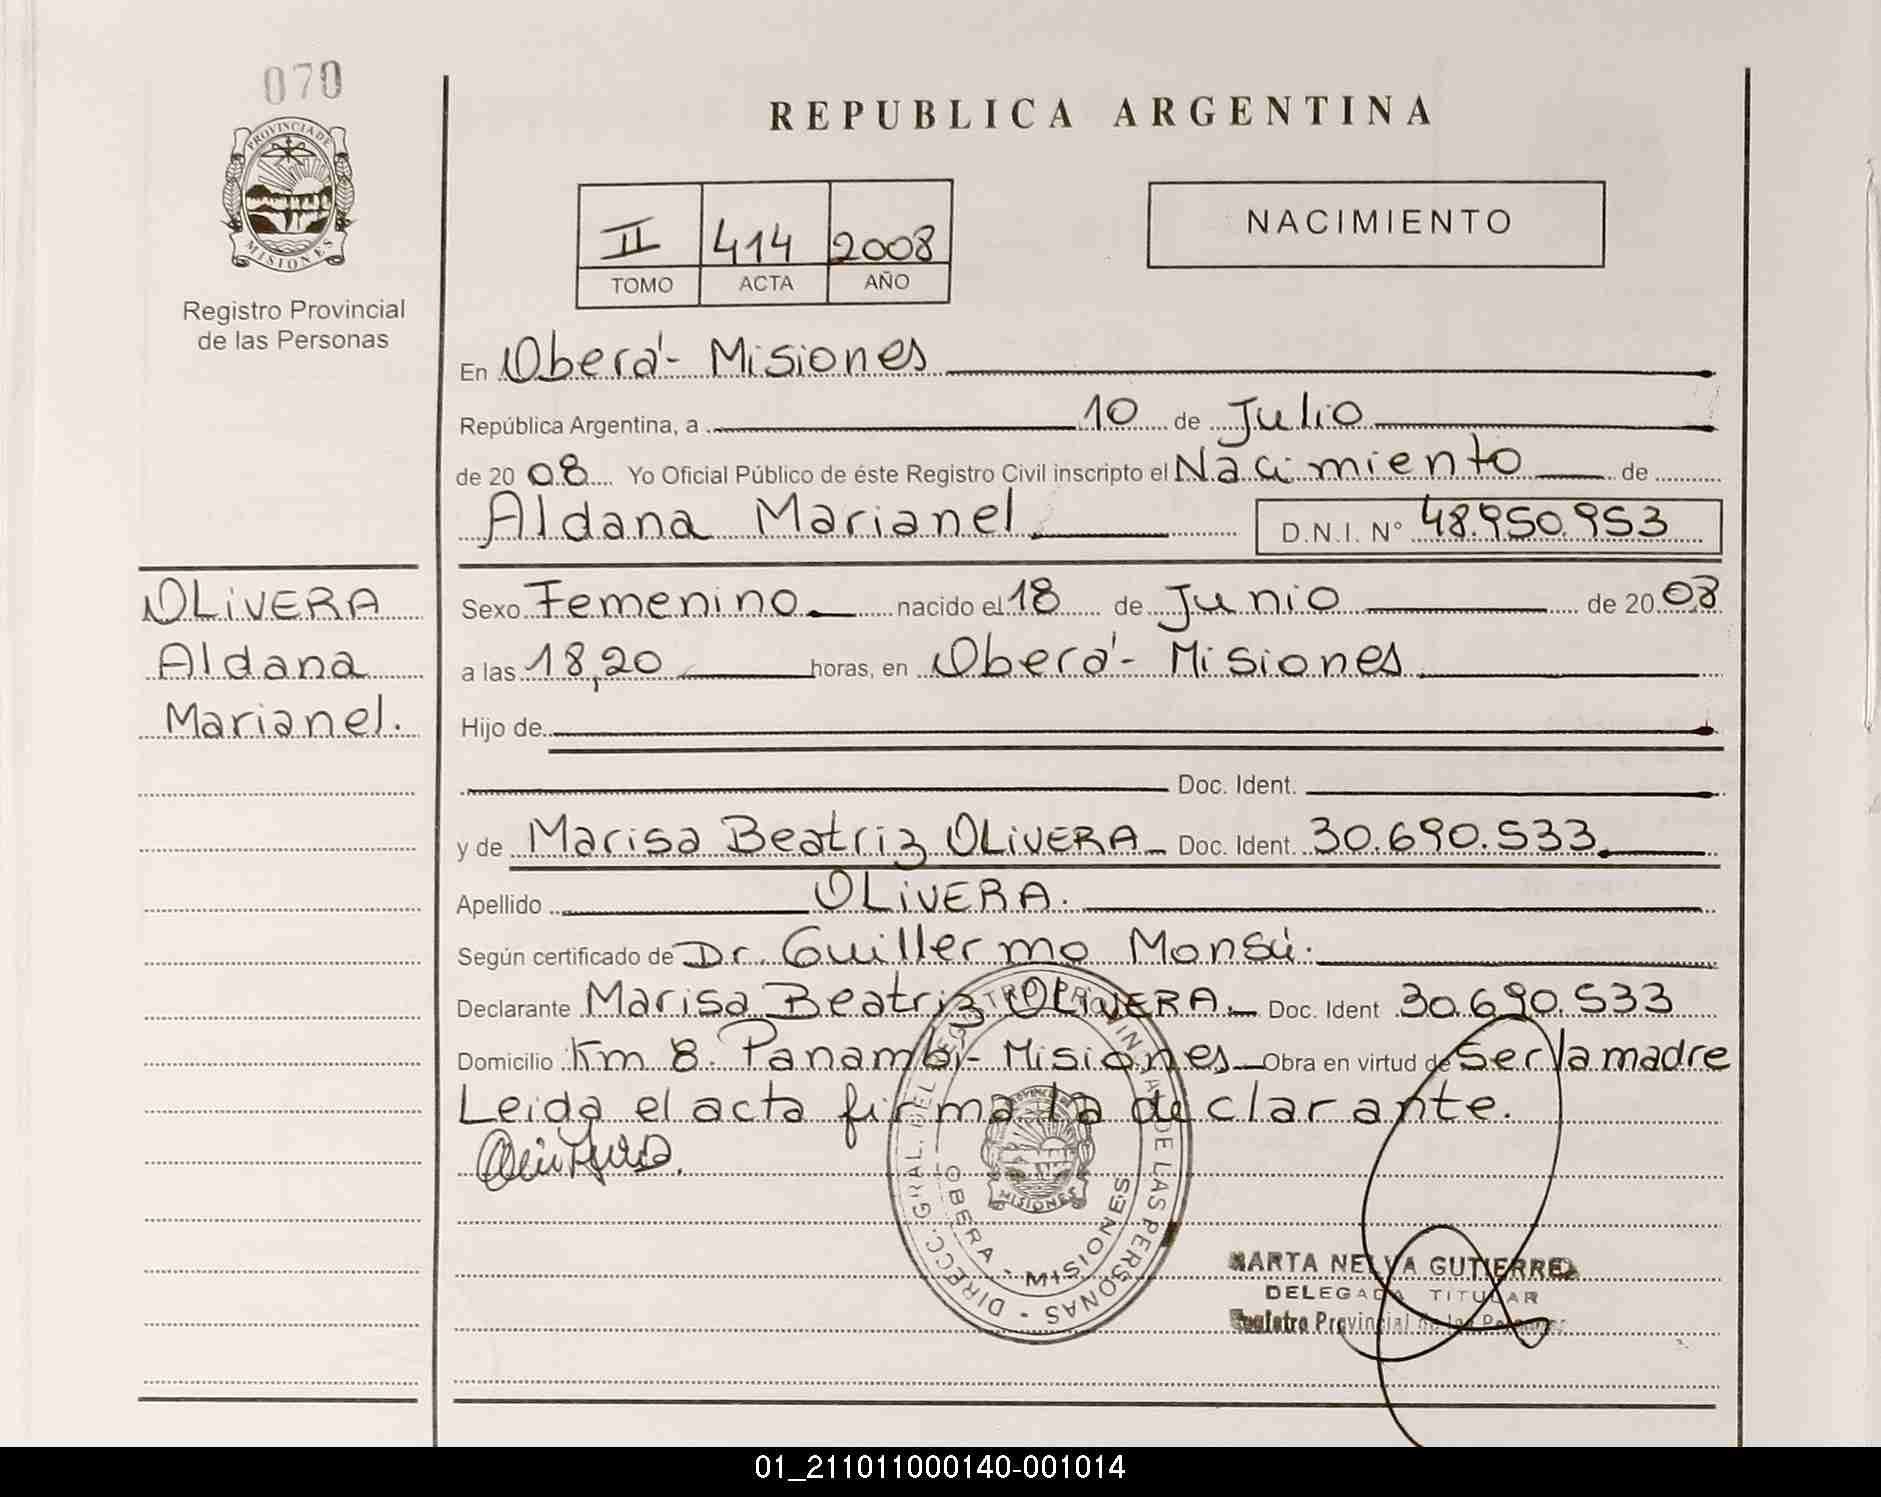 070
PROVINCIA DE
MISIONES
Registro Provincial
de las Personas
REPUBLICA ARGENTINA
II 414 2008
TOMO ACTA AÑO
NACIMIENTO
En Oberá - Misiones
República Argentina, a 10 de Julio
de 20 08 Yo Oficial Público de éste Registro Civil inscripto el Nacimiento de
Aldana Marianel D.N.I. N° 48.950.953
OLiVERA
Aldana
Marianel.
Sexo Femenino nacido el 18 de Junio de 20 08
a las 18,20 horas, en Oberá - Misiones
Hijo de
Doc. Ident.
y de Marisa Beatriz OLiVERA Doc. Ident. 30.690.533
Apellido OLiVERA.
Según certificado de Dr. Guillermo Monsú.
Declarante Marisa Beatriz OLiVERA. Doc. Ident 30.690.533
Domicilio Km 8. Panambí - Misiones Obra en virtud de Ser la madre
Leida el acta firma la declarante.
DIRECC. GRAL. DEL REGISTRO PROVINCIAL DE LAS PERSONAS
OBERA - MISIONES
PROVINCIA DE
MISIONES
MARTA NELVA GUTIERREZ
DELEGADA TITULAR
Registro Provincial de las Personas
01_211011000140-001014